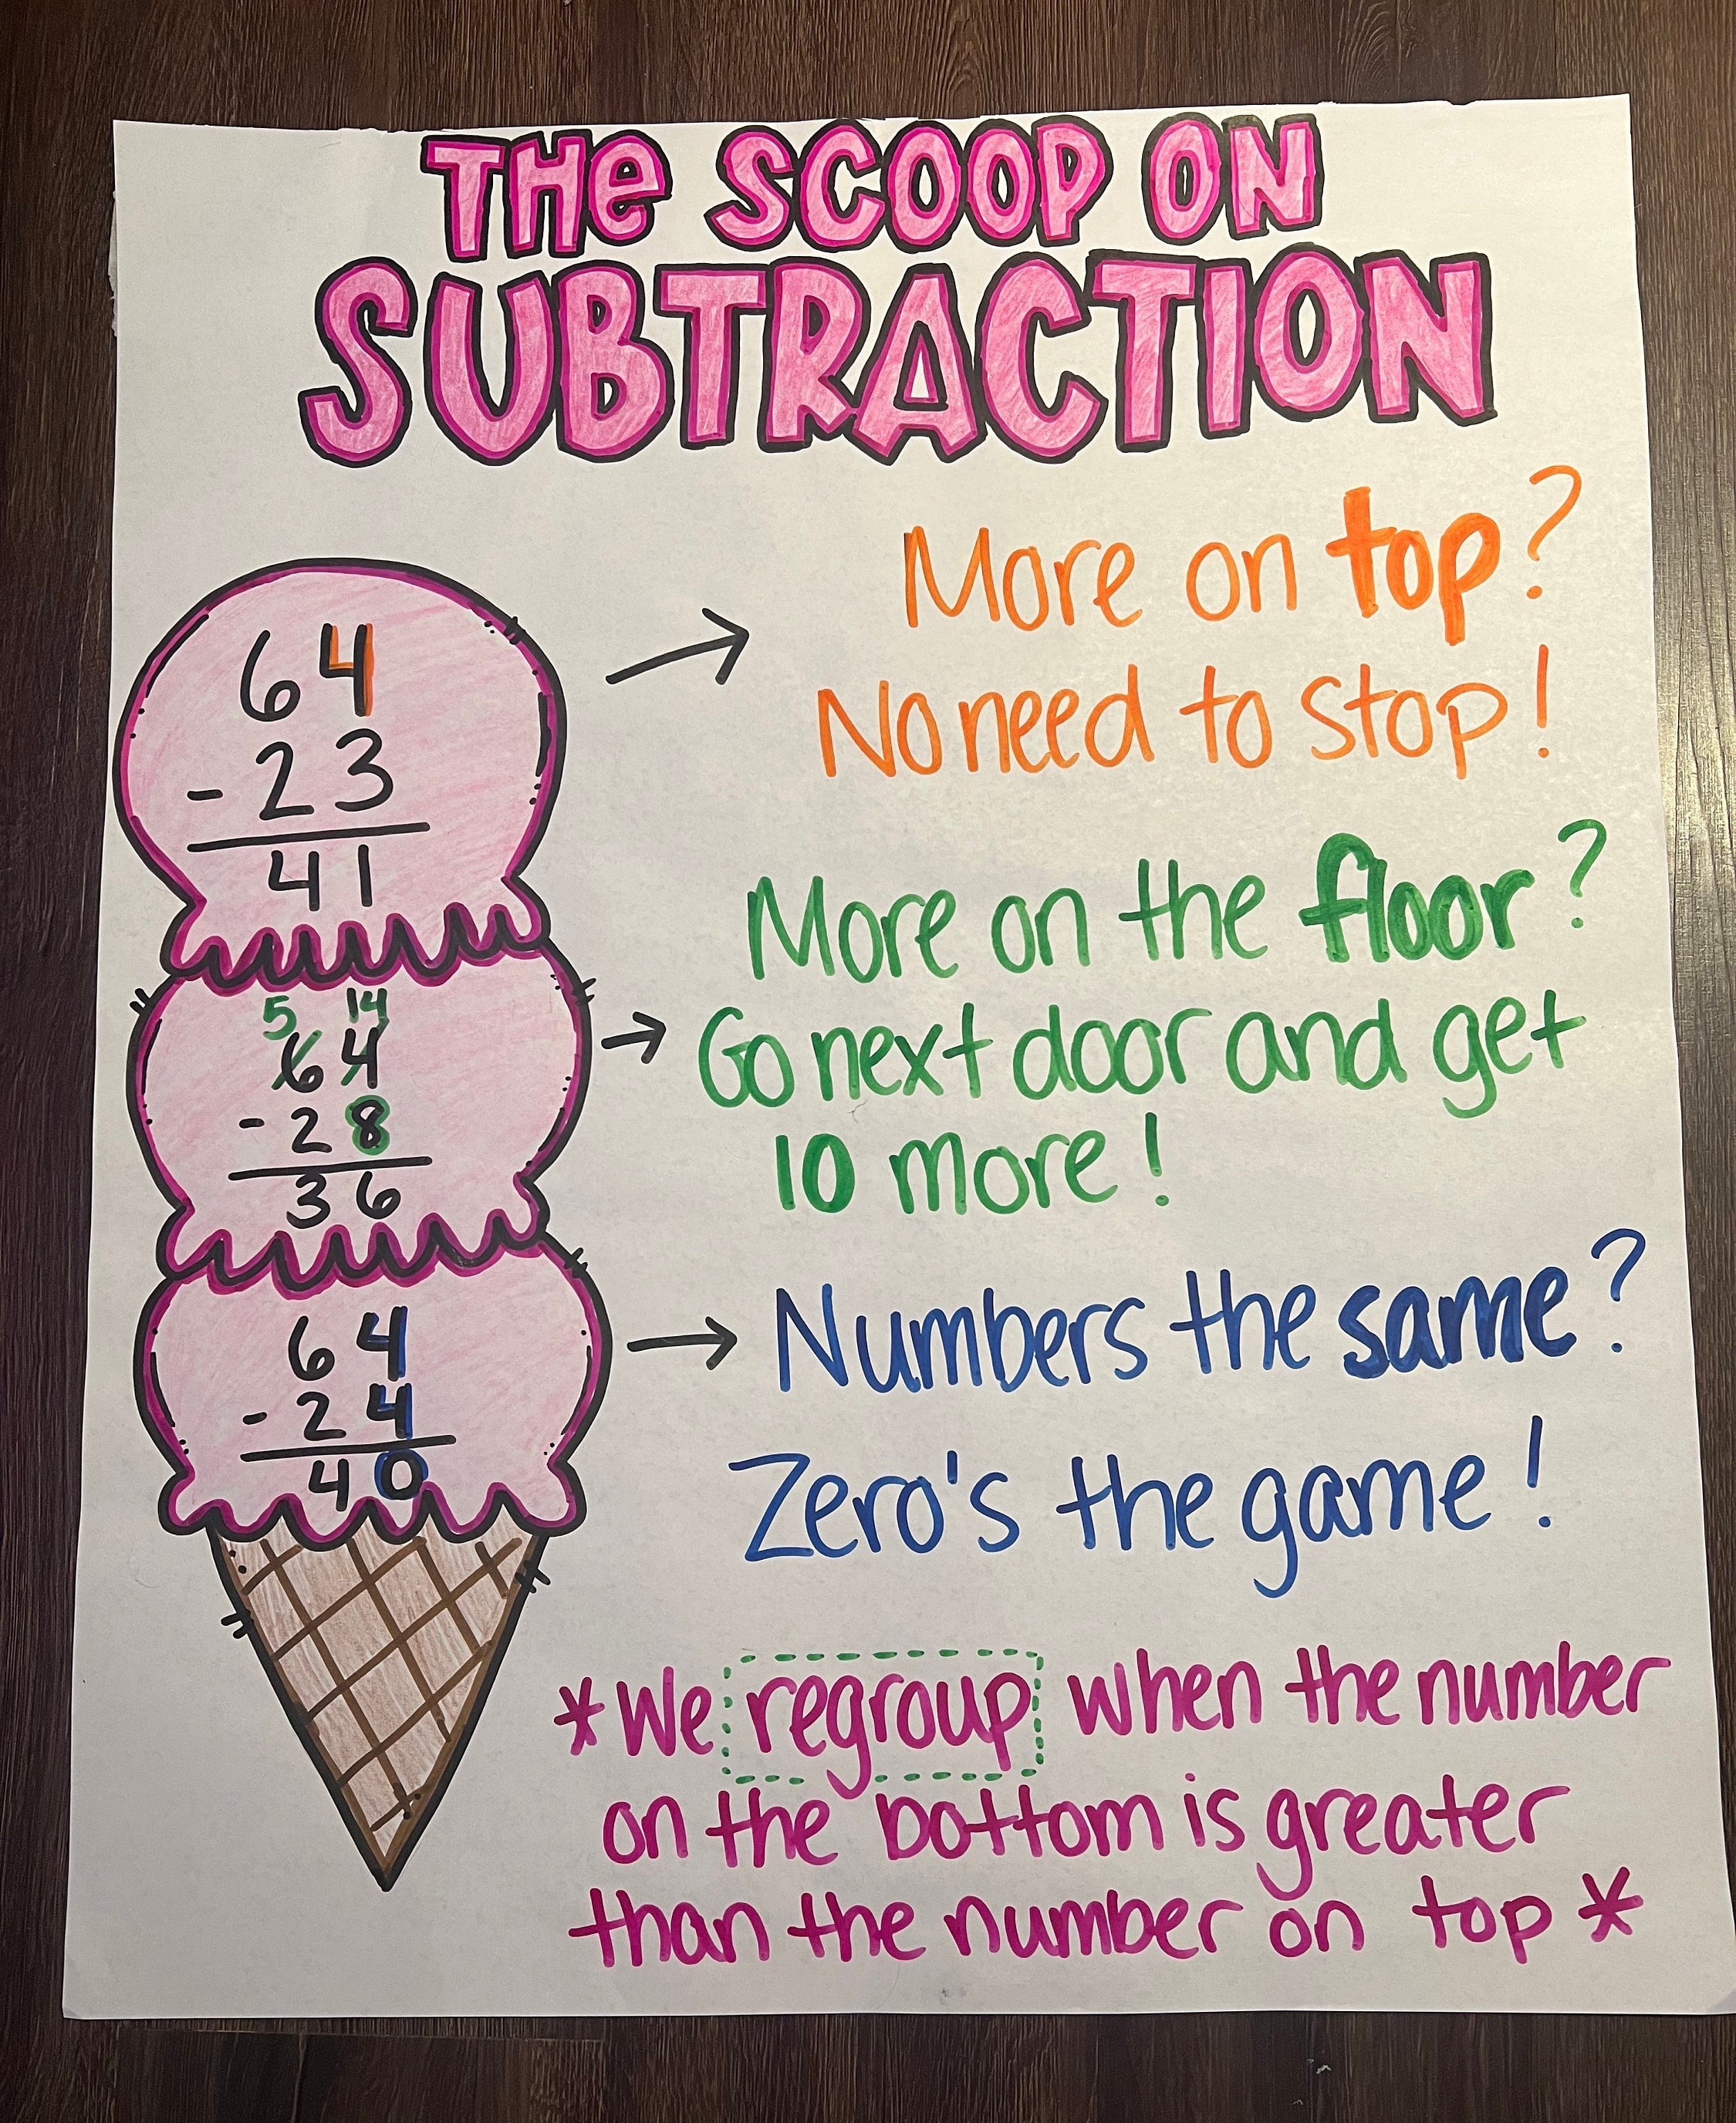 THe SCOOP ON
SUBTRACTION
More on top?
No need to stop!
64
- 23
41
More on the floor?
Go next door and get
10 more!
5 14
64
- 28
36
Numbers the same?
Zero's the game!
64
- 24
40
*We regroup when the number
on the bottom is greater
than the number on top*